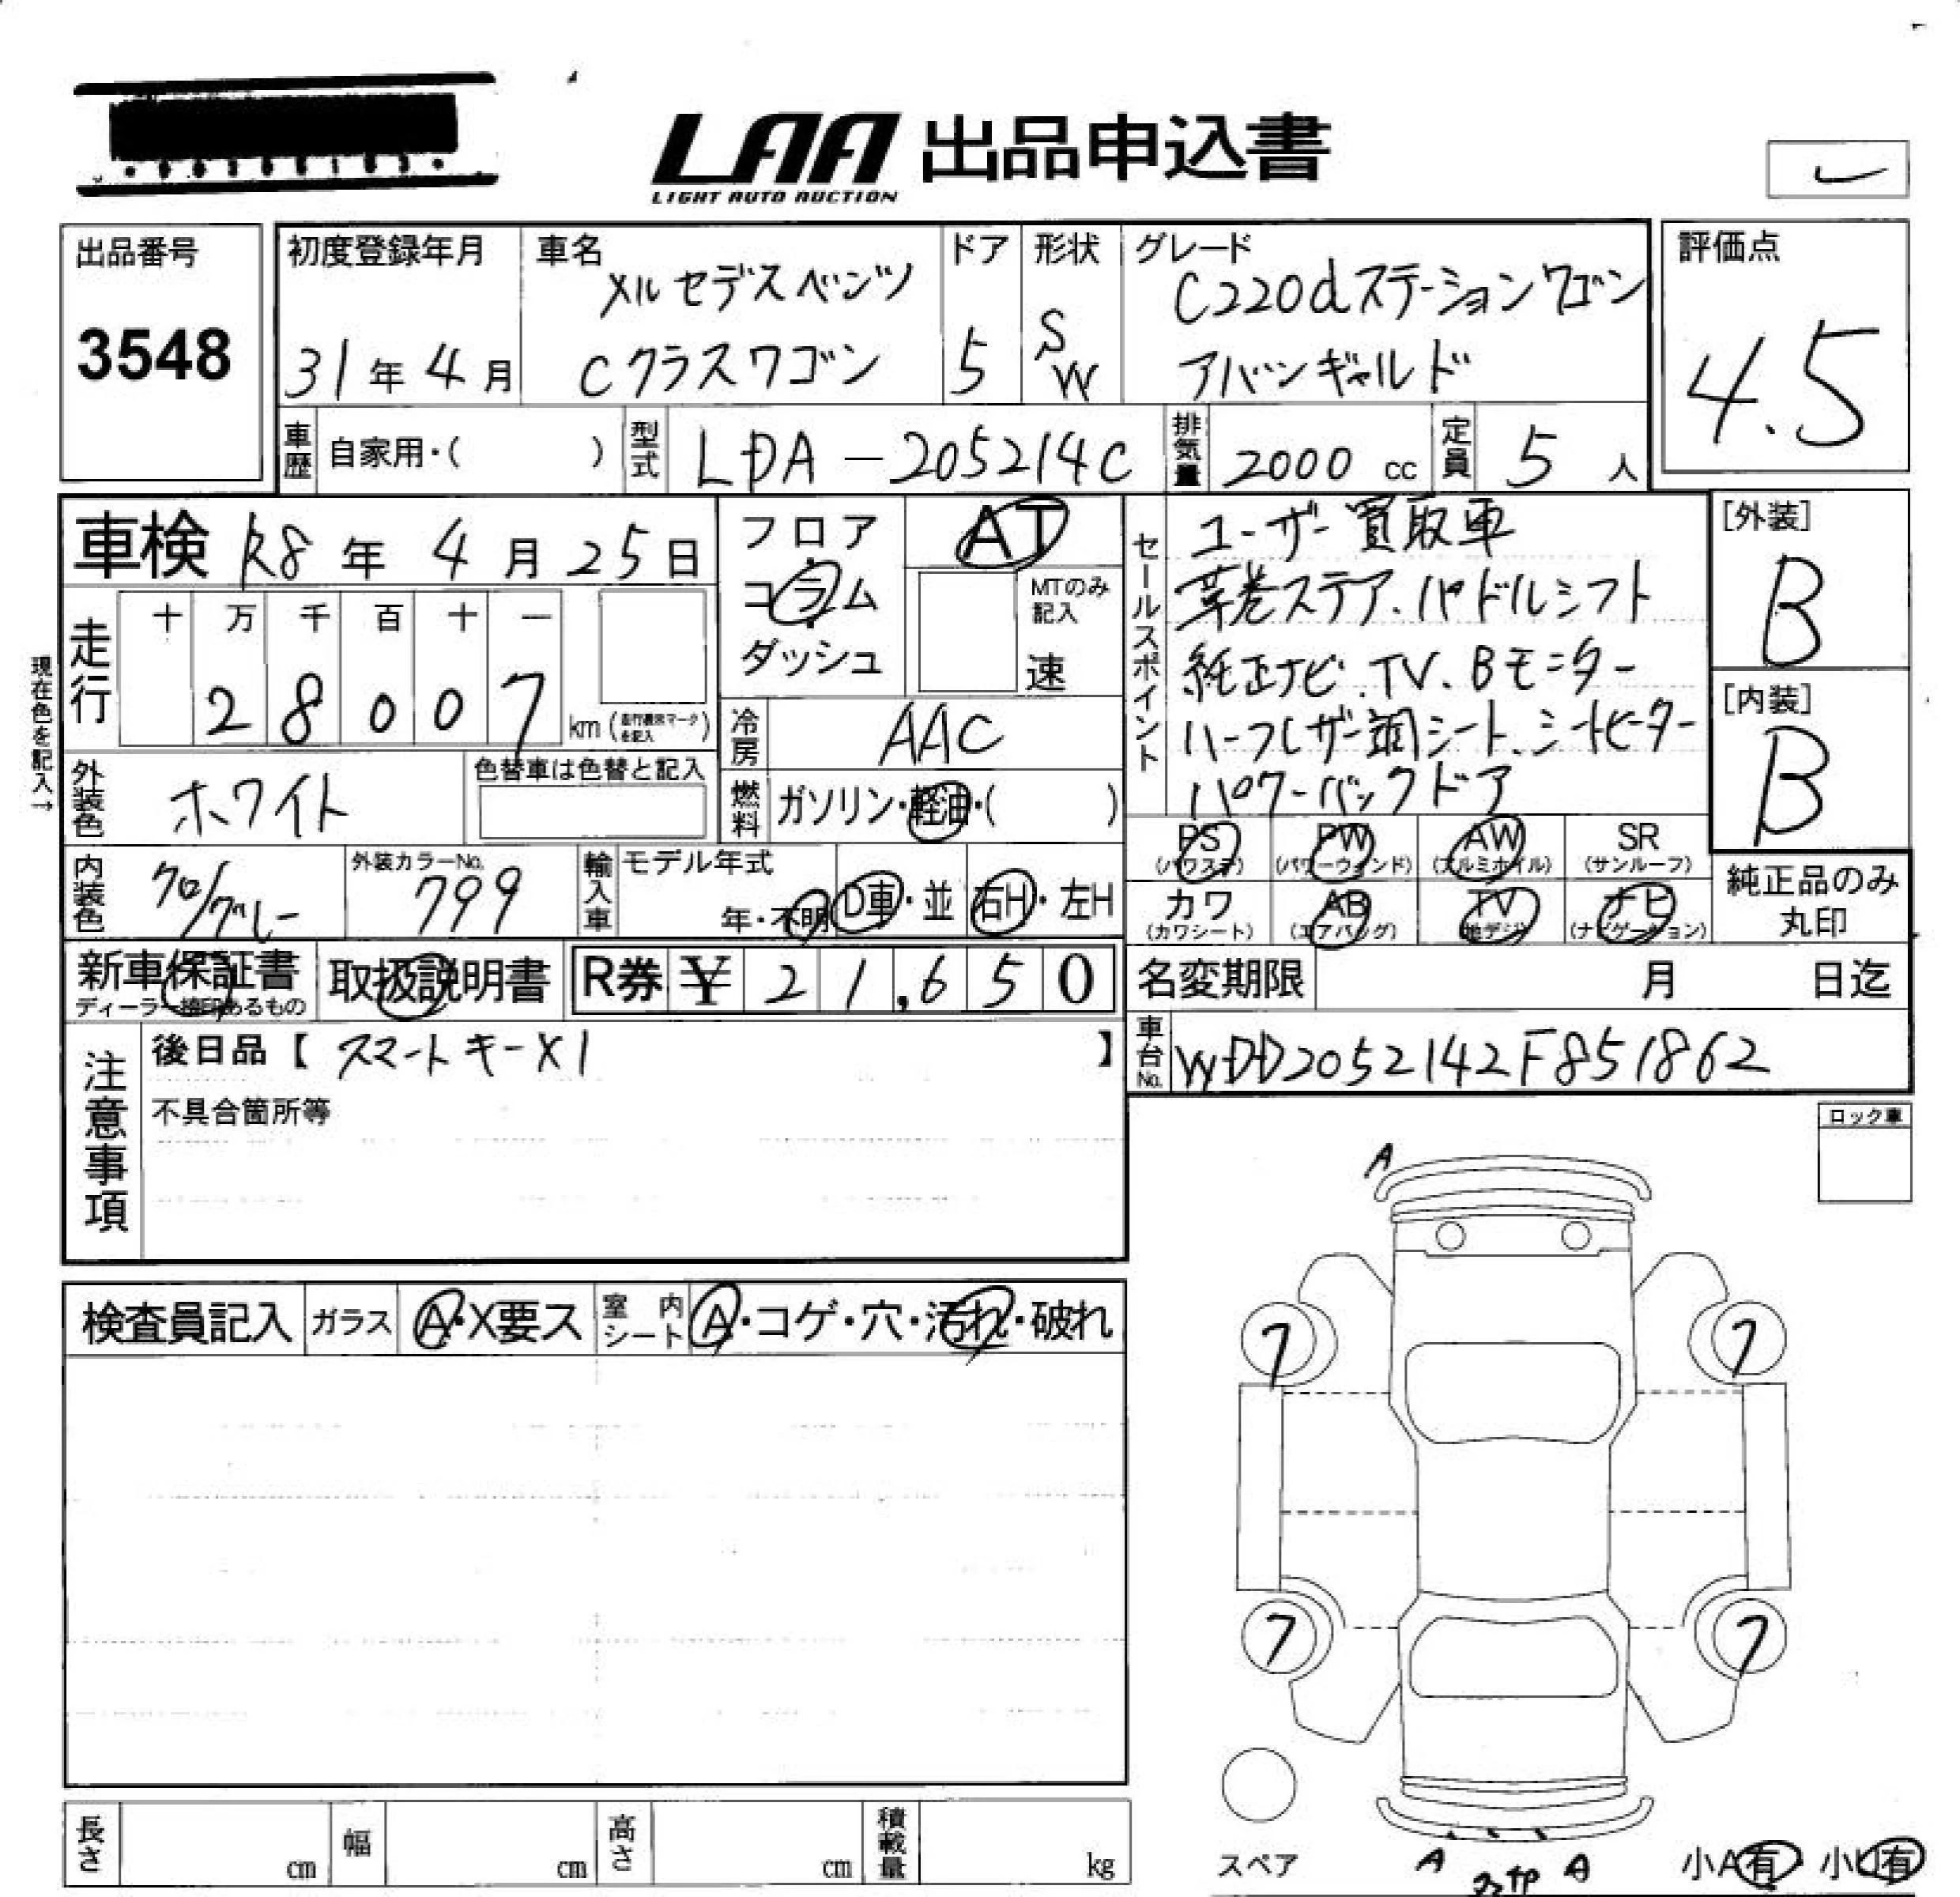 LAA 出品申込書
LIGHT AUTO AUCTION
出品番号
3548
初度登録年月
31年4月
車名
メルセデスベンツ
Cクラスワゴン
ドア
5
形状
SW
グレード
C220dステーションワゴン
アバンギャルド
評価点
4.5
車歴 自家用・( )
型式 LDA-205214C
排気量 2000 cc
定員 5 人
車検 R8年4月25日
現在色を記入→
走行
十 万 千 百 十 一
2 8 0 0 7
km (走行表示マークを記入)
フロア
コラム
ダッシュ
AT
MTのみ記入
速
冷房 AAC
燃料 ガソリン・軽油・( )
外装色 ホワイト
色替車は色替と記入
内装色 クロ/グレー
外装カラーNo. 799
輸入車
モデル年式
年・不明
D車・並
右H・左H
セールスポイント
ユーザー買取車
革巻ステア、パドルシフト
純正ナビ、TV、Bモニター
ハーフレザー調シート、シートヒーター
パワーバックドア
[外装]
B
[内装]
B
PS (パワステ)
PW (パワーウィンド)
AW (アルミホイル)
SR (サンルーフ)
カワ (カワシート)
AB (エアバッグ)
TV (地デジ)
ナビ (ナビゲーション)
純正品のみ
丸印
新車保証書
ディーラー捺印あるもの
取扱説明書
R券 ¥ 21,650
名変期限 月 日迄
車台No. WDD2052142F851862
注意事項
後日品【スマートキーX1 】
不具合箇所等
ロック車
検査員記入
ガラス A・X要ス
室内シート A・コゲ・穴・汚れ・破れ
A
7 7
7 7
長さ cm
幅 cm
高さ cm
積載量 kg
スペア
A A
小A有・小U有